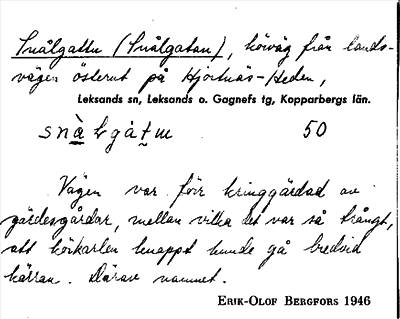 Snålgattu (Snålgatan), körväg från lands-
vägen österut på Hjortnäs-Heden,
Leksands sn, Leksands o. Gagnefs tg, Kopparbergs län.
50
Vägen var förr kringgärdad av
gärdesgårdar, mellan vilka det var så trångt,
att körkarlen knappt kunde gå bredvid
kärran. Därav namnet.
ERIK-OLOF BERGFORS 1946